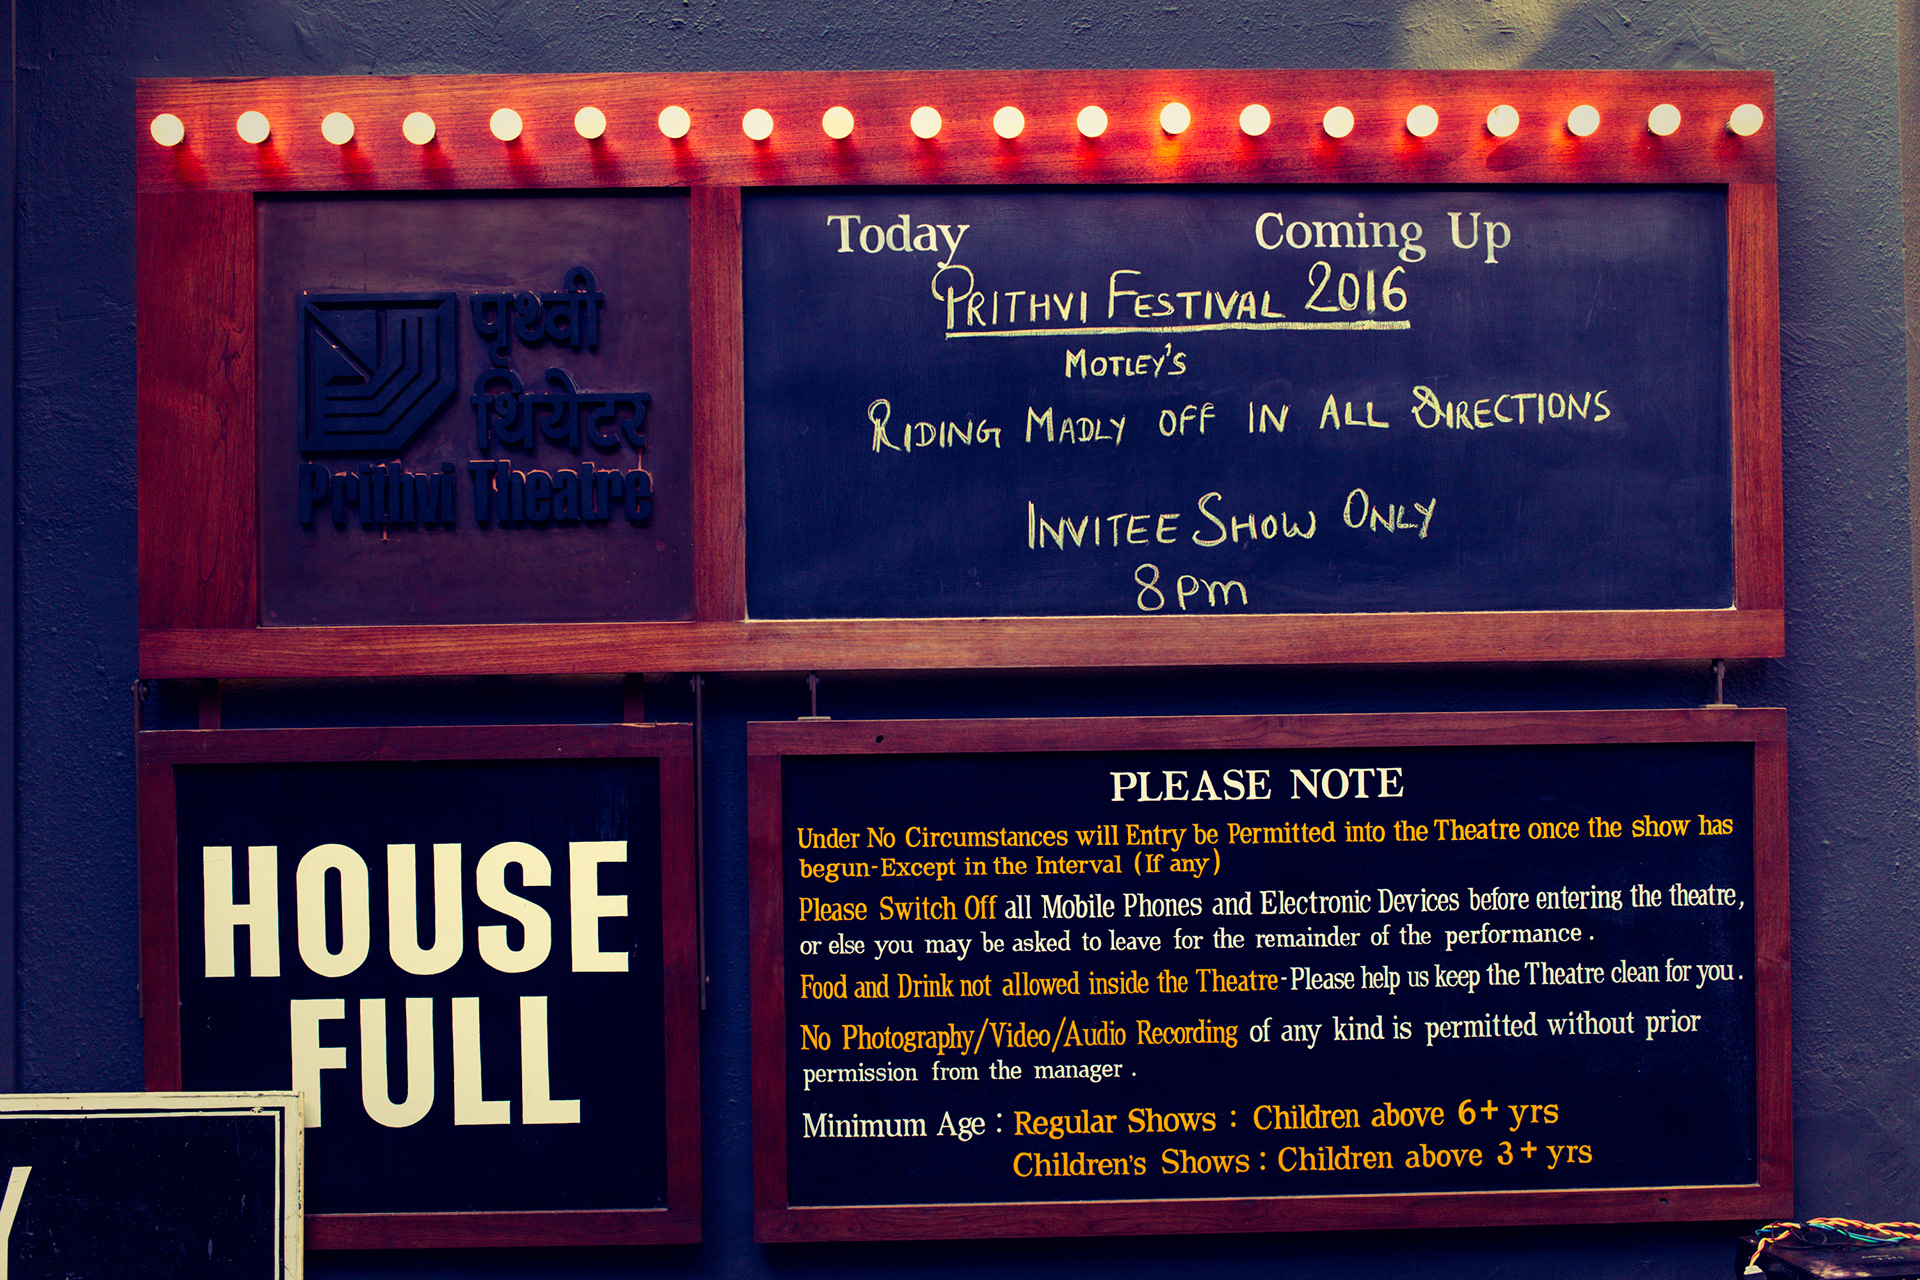 पृथ्वी
थियेटर
Prithvi Theatre
Today Coming Up
PRITHVI FESTIVAL 2016
MOTLEY'S
RIDING MADLY OFF IN ALL DIRECTIONS
INVITEE SHOW ONLY
8 pm
HOUSE
FULL
PLEASE NOTE
Under No Circumstances will Entry be Permitted into the Theatre once the show has
begun-Except in the Interval (If any)
Please Switch Off all Mobile Phones and Electronic Devices before entering the theatre,
or else you may be asked to leave for the remainder of the performance.
Food and Drink not allowed inside the Theatre-Please help us keep the Theatre clean for you.
No Photography/Video/Audio Recording of any kind is permitted without prior
permission from the manager.
Minimum Age : Regular Shows : Children above 6+ yrs
Children's Shows : Children above 3+ yrs